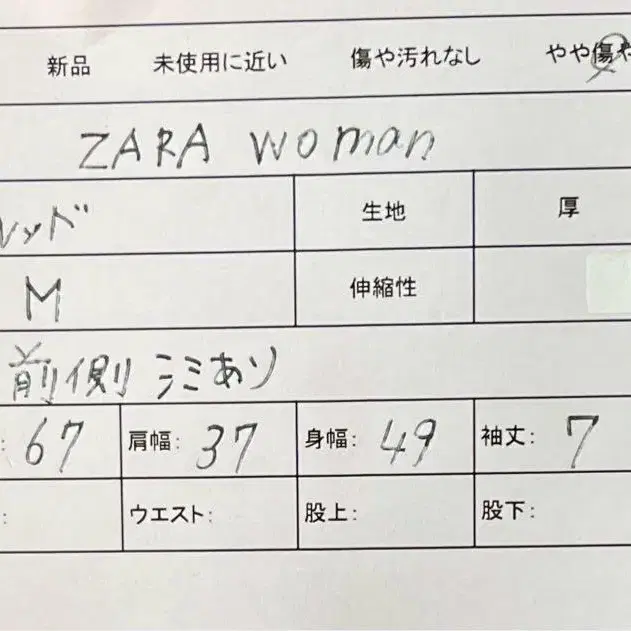 新品 未使用に近い 傷や汚れなし やや傷や
ZARA woman
レッド 生地 厚
M 伸縮性
前側 シミあり
: 67 肩幅: 37 身幅: 49 袖丈: 7
: ウエスト: 股上: 股下: